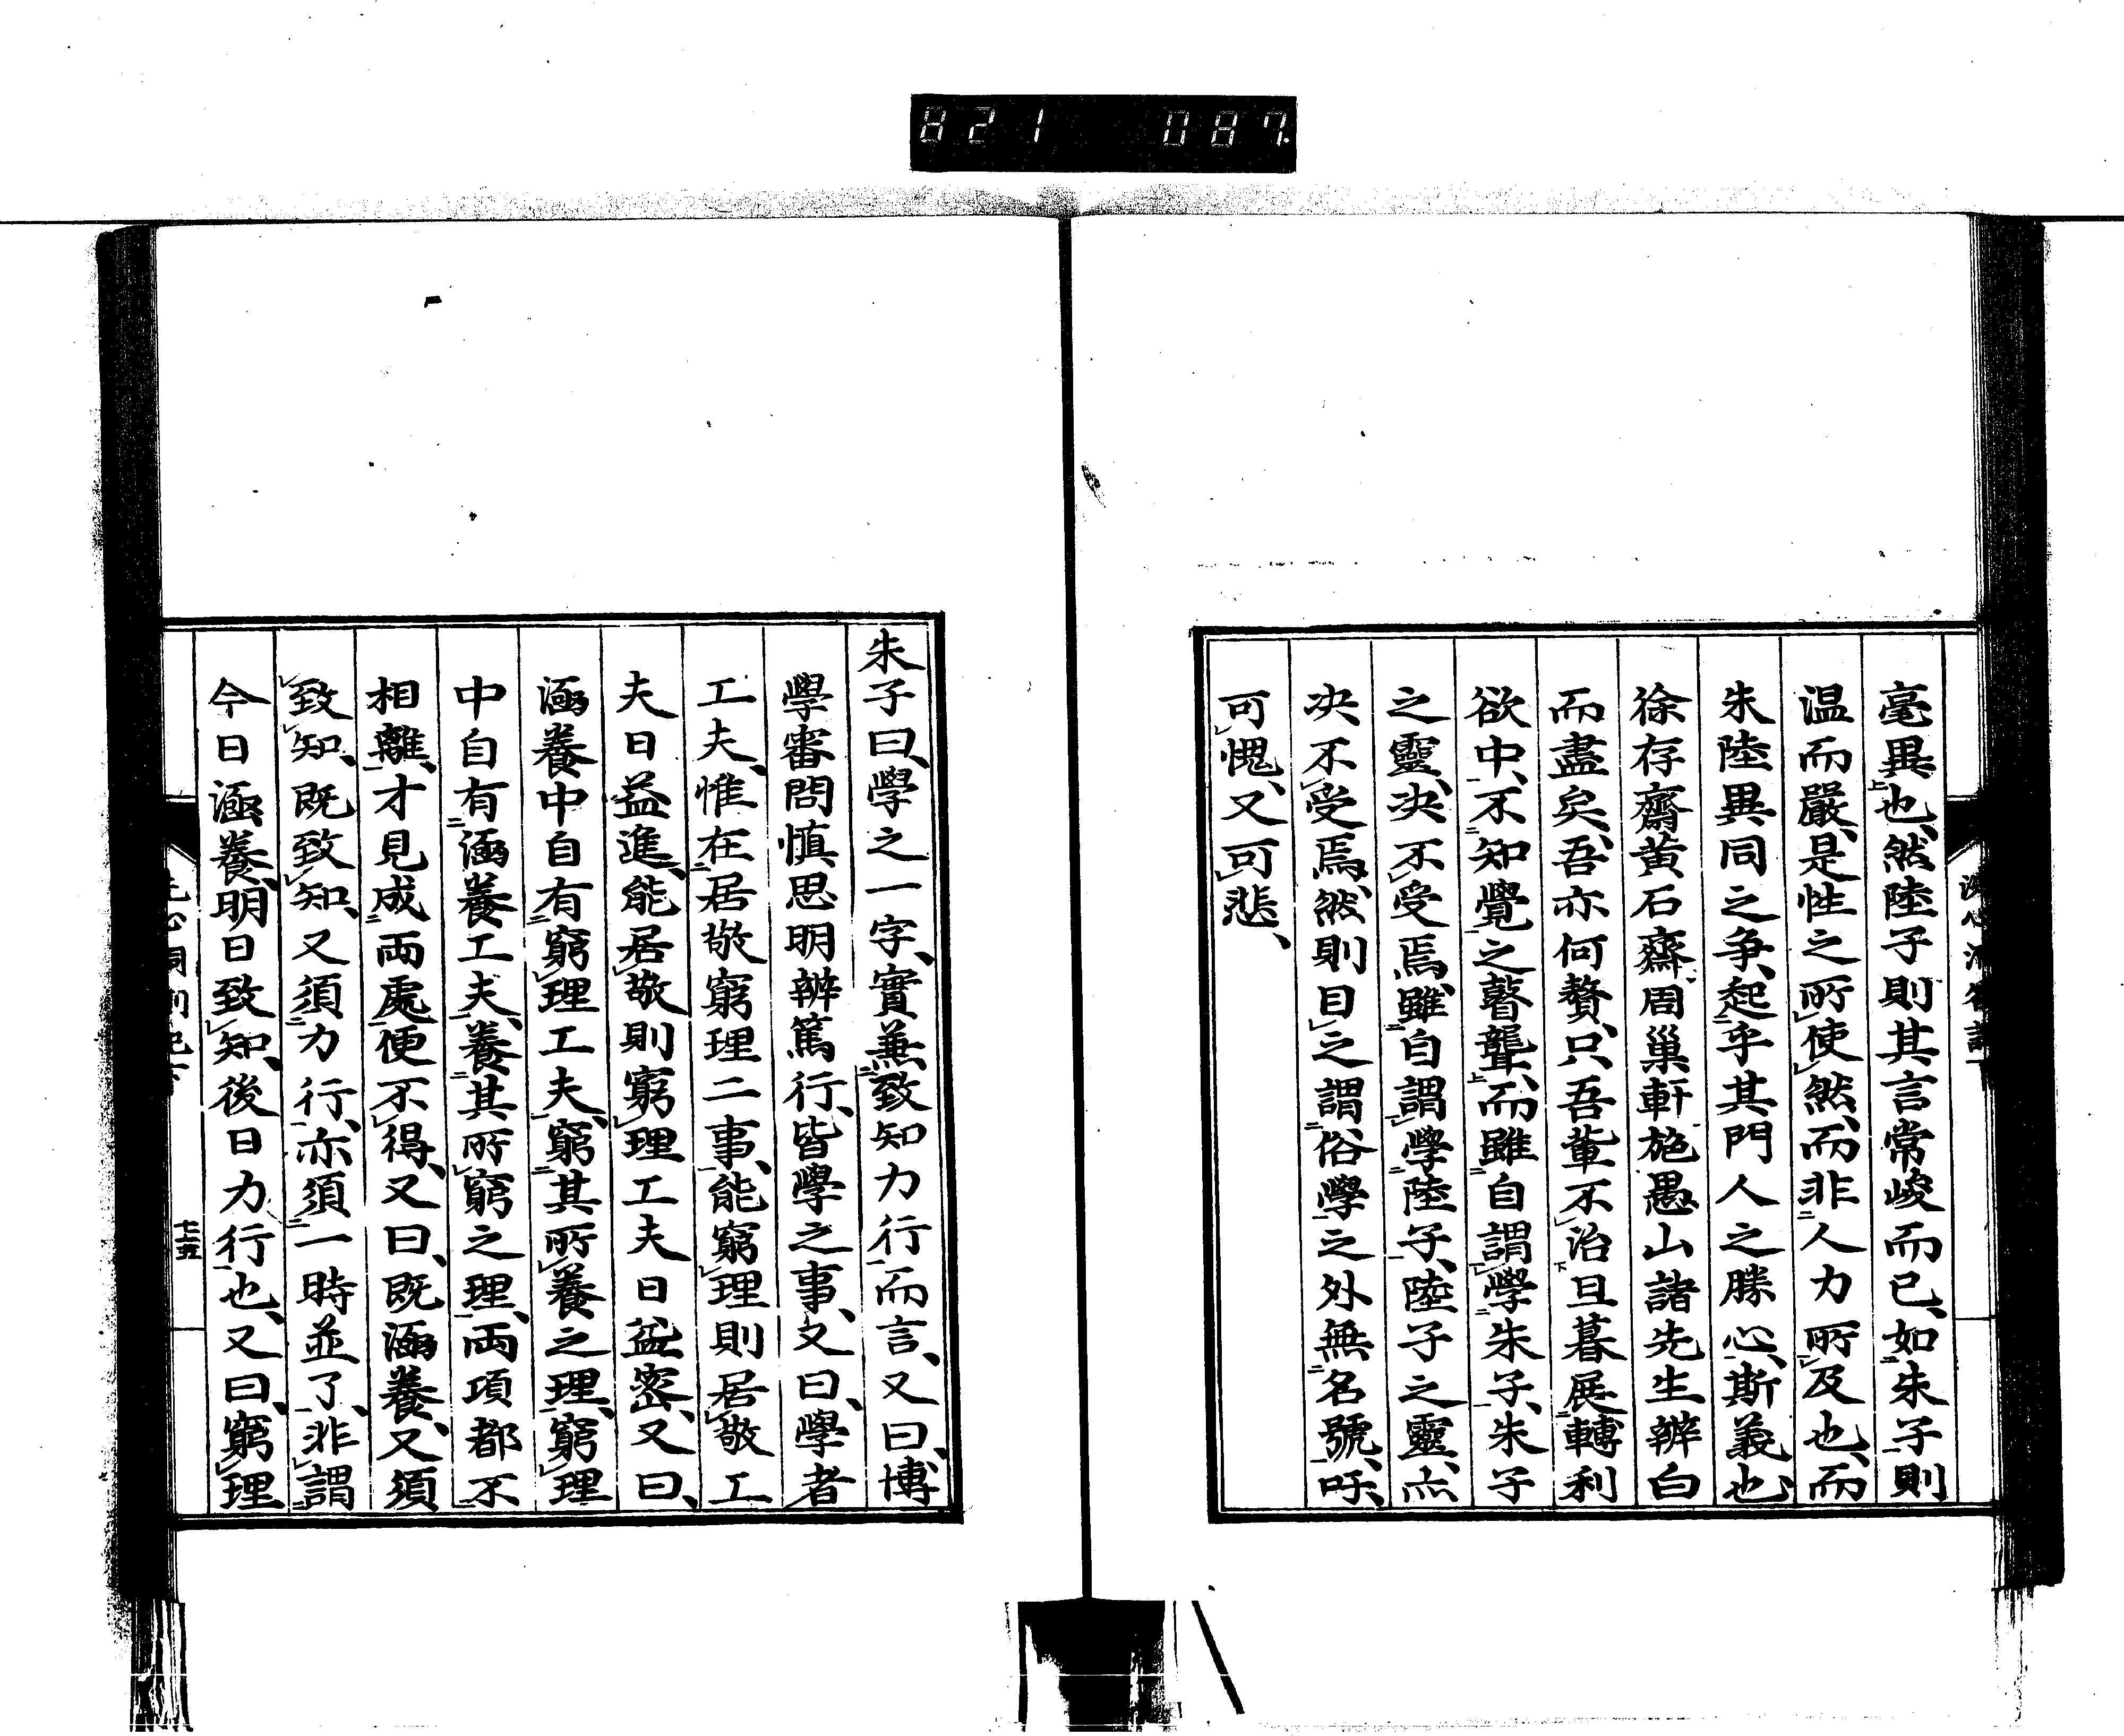 821 087
毫異也、然陸子則其言常峻而已、如朱子則
温而嚴、是性之所使然、而非人力所及也、而
朱陸異同之爭、起乎其門人之勝心、斯義也、
徐存齋黄石齋周巢軒施愚山諸先生辨白
而盡矣、吾亦何贅、只吾輩不治旦暮展轉利
欲中、不知覺之瞽聾、而雖自謂學朱子、朱子
之靈、决不受焉、雖自謂學陸子、陸子之靈、亦
决不受焉、然則目之謂俗學之外無名號、吁、
可愧、又可悲、
朱子曰、學之一字、實兼致知力行而言、又曰、博
學審問慎思明辨篤行、皆學之事、又曰、學者
工夫、惟在居敬窮理二事、能窮理則居敬工
夫日益進、能居敬則窮理工夫日益密、又曰、
涵養中自有窮理工夫、窮其所養之理、窮理
中自有涵養工夫、養其所窮之理、兩項都不
相離、才見成兩處便不得、又曰、既涵養、又須
致知、既致知、又須力行、亦須一時並了、非謂
今日涵養、明日致知、後日力行也、又曰、窮理
七十五